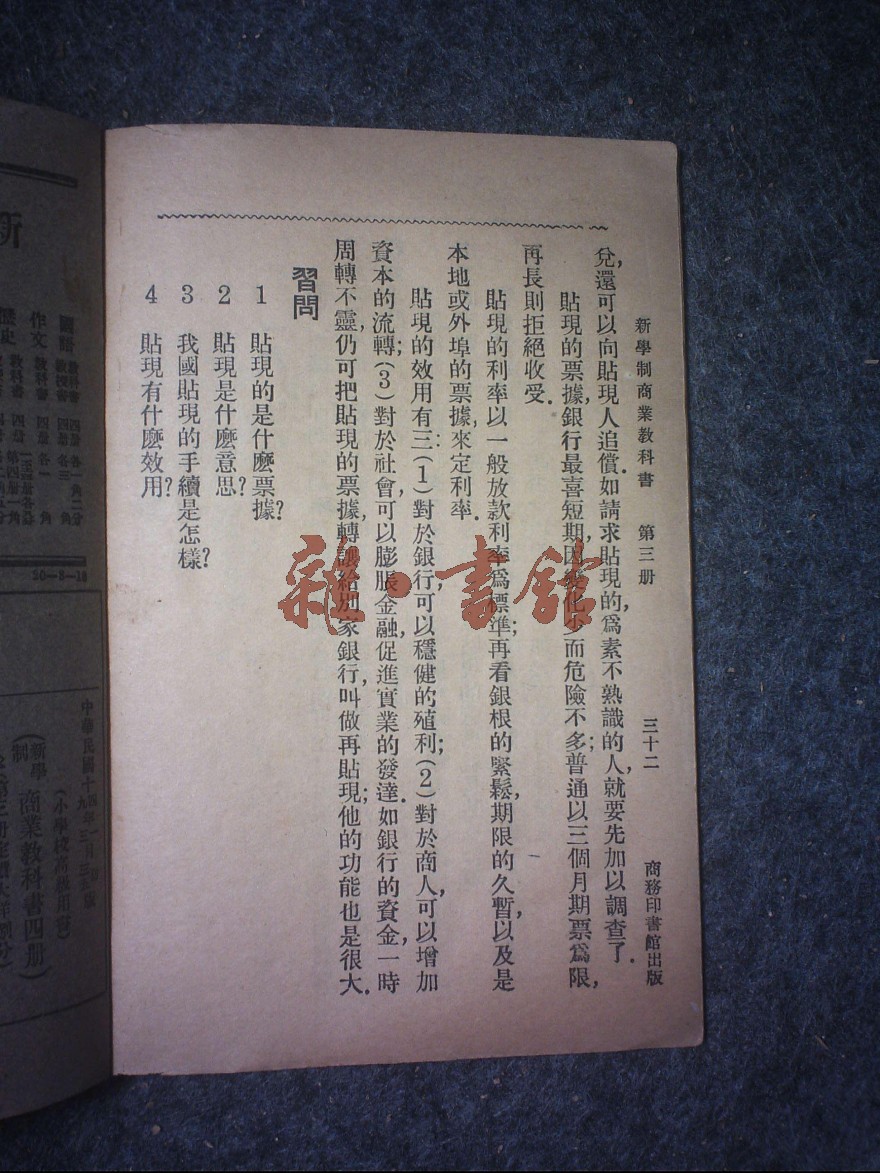 新學制商業教科書 第三册 三十二 商務印書館出版
兌,還可以向貼現人追償.如請求貼現的,爲素不熟識的人,就要先加以調查了.
貼現的票據,銀行最喜短期,因變化少而危險不多;普通以三個月期票爲限,
再長則拒絕收受.
貼現的利率以一般放款利率爲標準;再看銀根的緊鬆,期限的久暫,以及是
本地或外埠的票據,來定利率.
貼現的效用有三:(1)對於銀行,可以穩健的殖利;(2)對於商人,可以增加
資本的流轉;(3)對於社會,可以膨脹金融,促進實業的發達.如銀行的資金,一時
周轉不靈,仍可把貼現的票據,轉讓給別家銀行,叫做再貼現;他的功能也是很大.
習問
1 貼現的是什麽票據?
2 貼現是什麽意思?
3 我國貼現的手續是怎樣?
4 貼現有什麽效用?
雜·書館
新
作文 教科書 四册
歷史 教科書
20—8—18
中華民國十
(小學校高級用書)
(新學制 商業教科書四册)